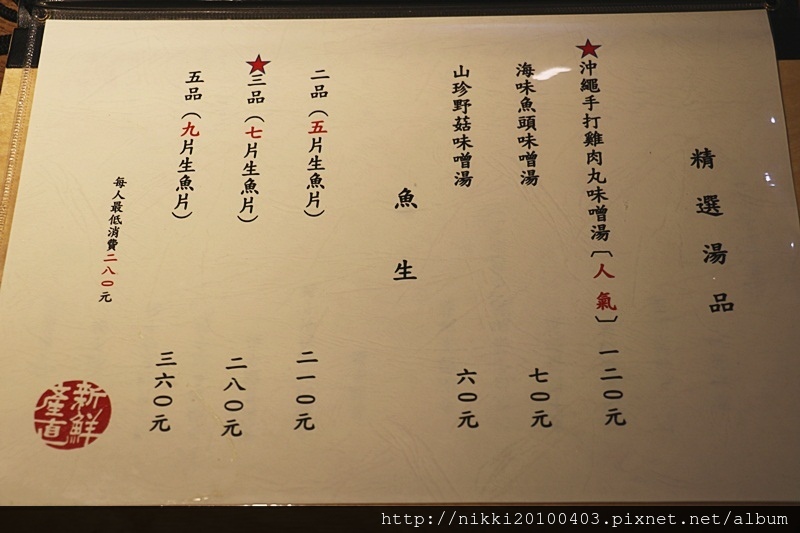 精選湯品
★沖繩手打雞肉丸味噌湯〔人氣〕一二０元
海味魚頭味噌湯 七０元
山珍野菇味噌湯 六０元
魚生
二品（五片生魚片） 二一０元
★三品（七片生魚片） 二八０元
五品（九片生魚片） 三六０元
每人最低消費二八０元
新鮮
產直
http://nikki20100403.pixnet.net/album